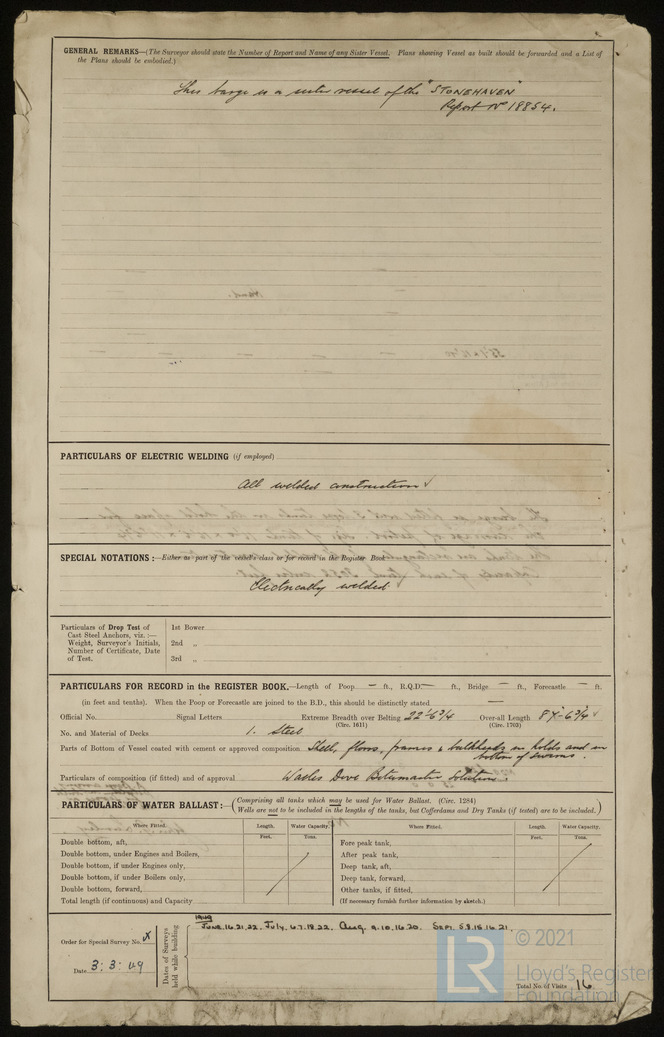 GENERAL REMARKS—(The Surveyor should state the Number of Report and Name of any Sister Vessel. Plans showing Vessel as built should be forwarded and a List of
the Plans should be embodied.)
This barge is a sister vessel of the "STONEHAVEN"
Report No 18854.
PARTICULARS OF ELECTRIC WELDING (if employed)
All welded construction
SPECIAL NOTATIONS:—Either as part of the vessel's class or for record in the Register Book
Electrically welded
Particulars of Drop Test of
Cast Steel Anchors, viz.:—
Weight, Surveyor's Initials,
Number of Certificate, Date
of Test.
1st Bower
2nd „
3rd „
PARTICULARS FOR RECORD in the REGISTER BOOK.—Length of Poop — ft., R.Q.D. — ft., Bridge — ft., Forecastle — ft.
(in feet and tenths). When the Poop or Forecastle are joined to the B.D., this should be distinctly stated —
Official No. Signal Letters Extreme Breadth over Belting 22'-6 3/4 Over-all Length
(Circ. 1611) (Circ. 1703)
No. and Material of Decks 1. Steel
Parts of Bottom of Vessel coated with cement or approved composition Shell, floors, frames & bulkheads in holds and in
bottom of
Particulars of composition (if fitted) and of approval Wailes Dove Bitumastic Solution.
PARTICULARS OF WATER BALLAST:—(Comprising all tanks which may be used for Water Ballast. (Circ. 1284)
Wells are not to be included in the lengths of the tanks, but Cofferdams and Dry Tanks (if tested) are to be included.)
Where Fitted. Length. Water Capacity. Where Fitted. Length. Water Capacity.
Feet. Tons. Feet. Tons.
Double bottom, aft, Fore peak tank,
Double bottom, under Engines and Boilers, After peak tank,
Double bottom, if under Engines only, Deep tank, aft,
Double bottom, if under Boilers only, Deep tank, forward,
Double bottom, forward, Other tanks, if fitted,
Total length (if continuous) and Capacity (If necessary furnish further information by sketch.)
Order for Special Survey No. X
Date 3:3:49
Dates of Surveys
held while building
1949
JUNE.16.21.22. July.6.7.18.22. Aug. 9.10.16.20. SEPT. 5.8.15.16.21.
Total No. of Visits 16
LR © 2021
Lloyd's Register
Foundation